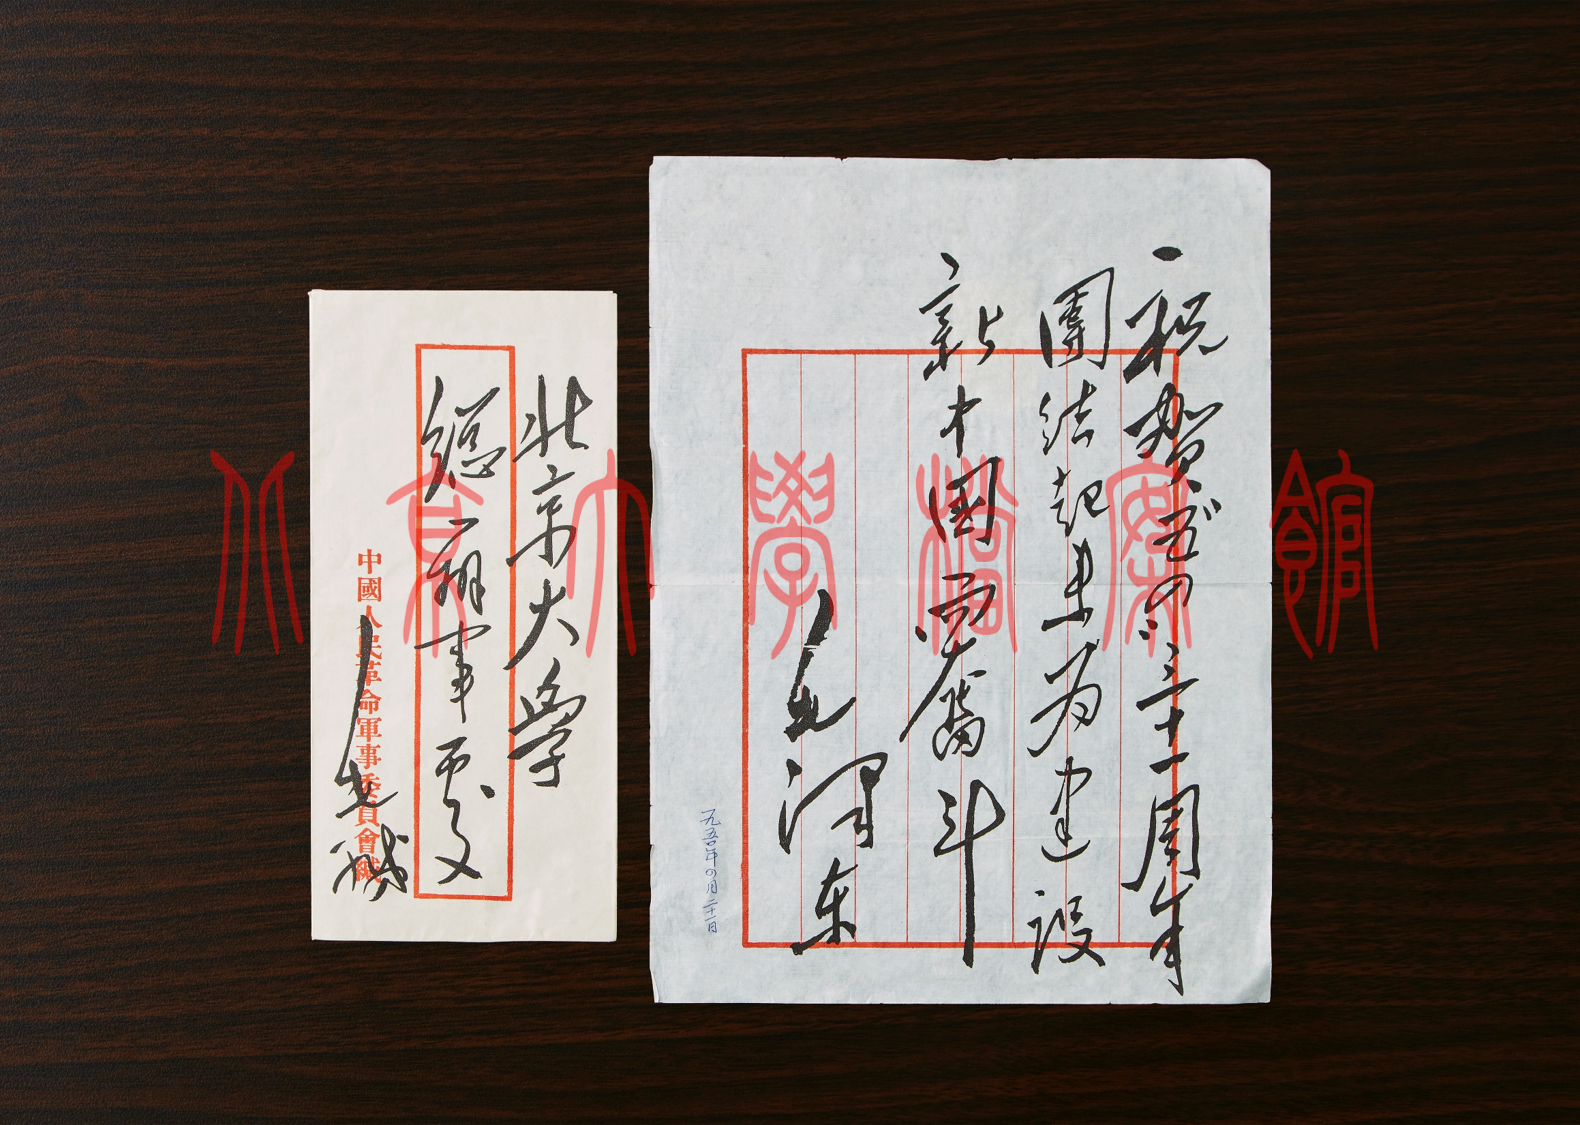 北京大學
總辦事處
中國人民革命軍事委員會緘
毛緘
祝賀五四三十一周年
團結起来为建設
新中國而奮斗
毛澤东
一九五〇年四月二十一日
北京大學檔案館